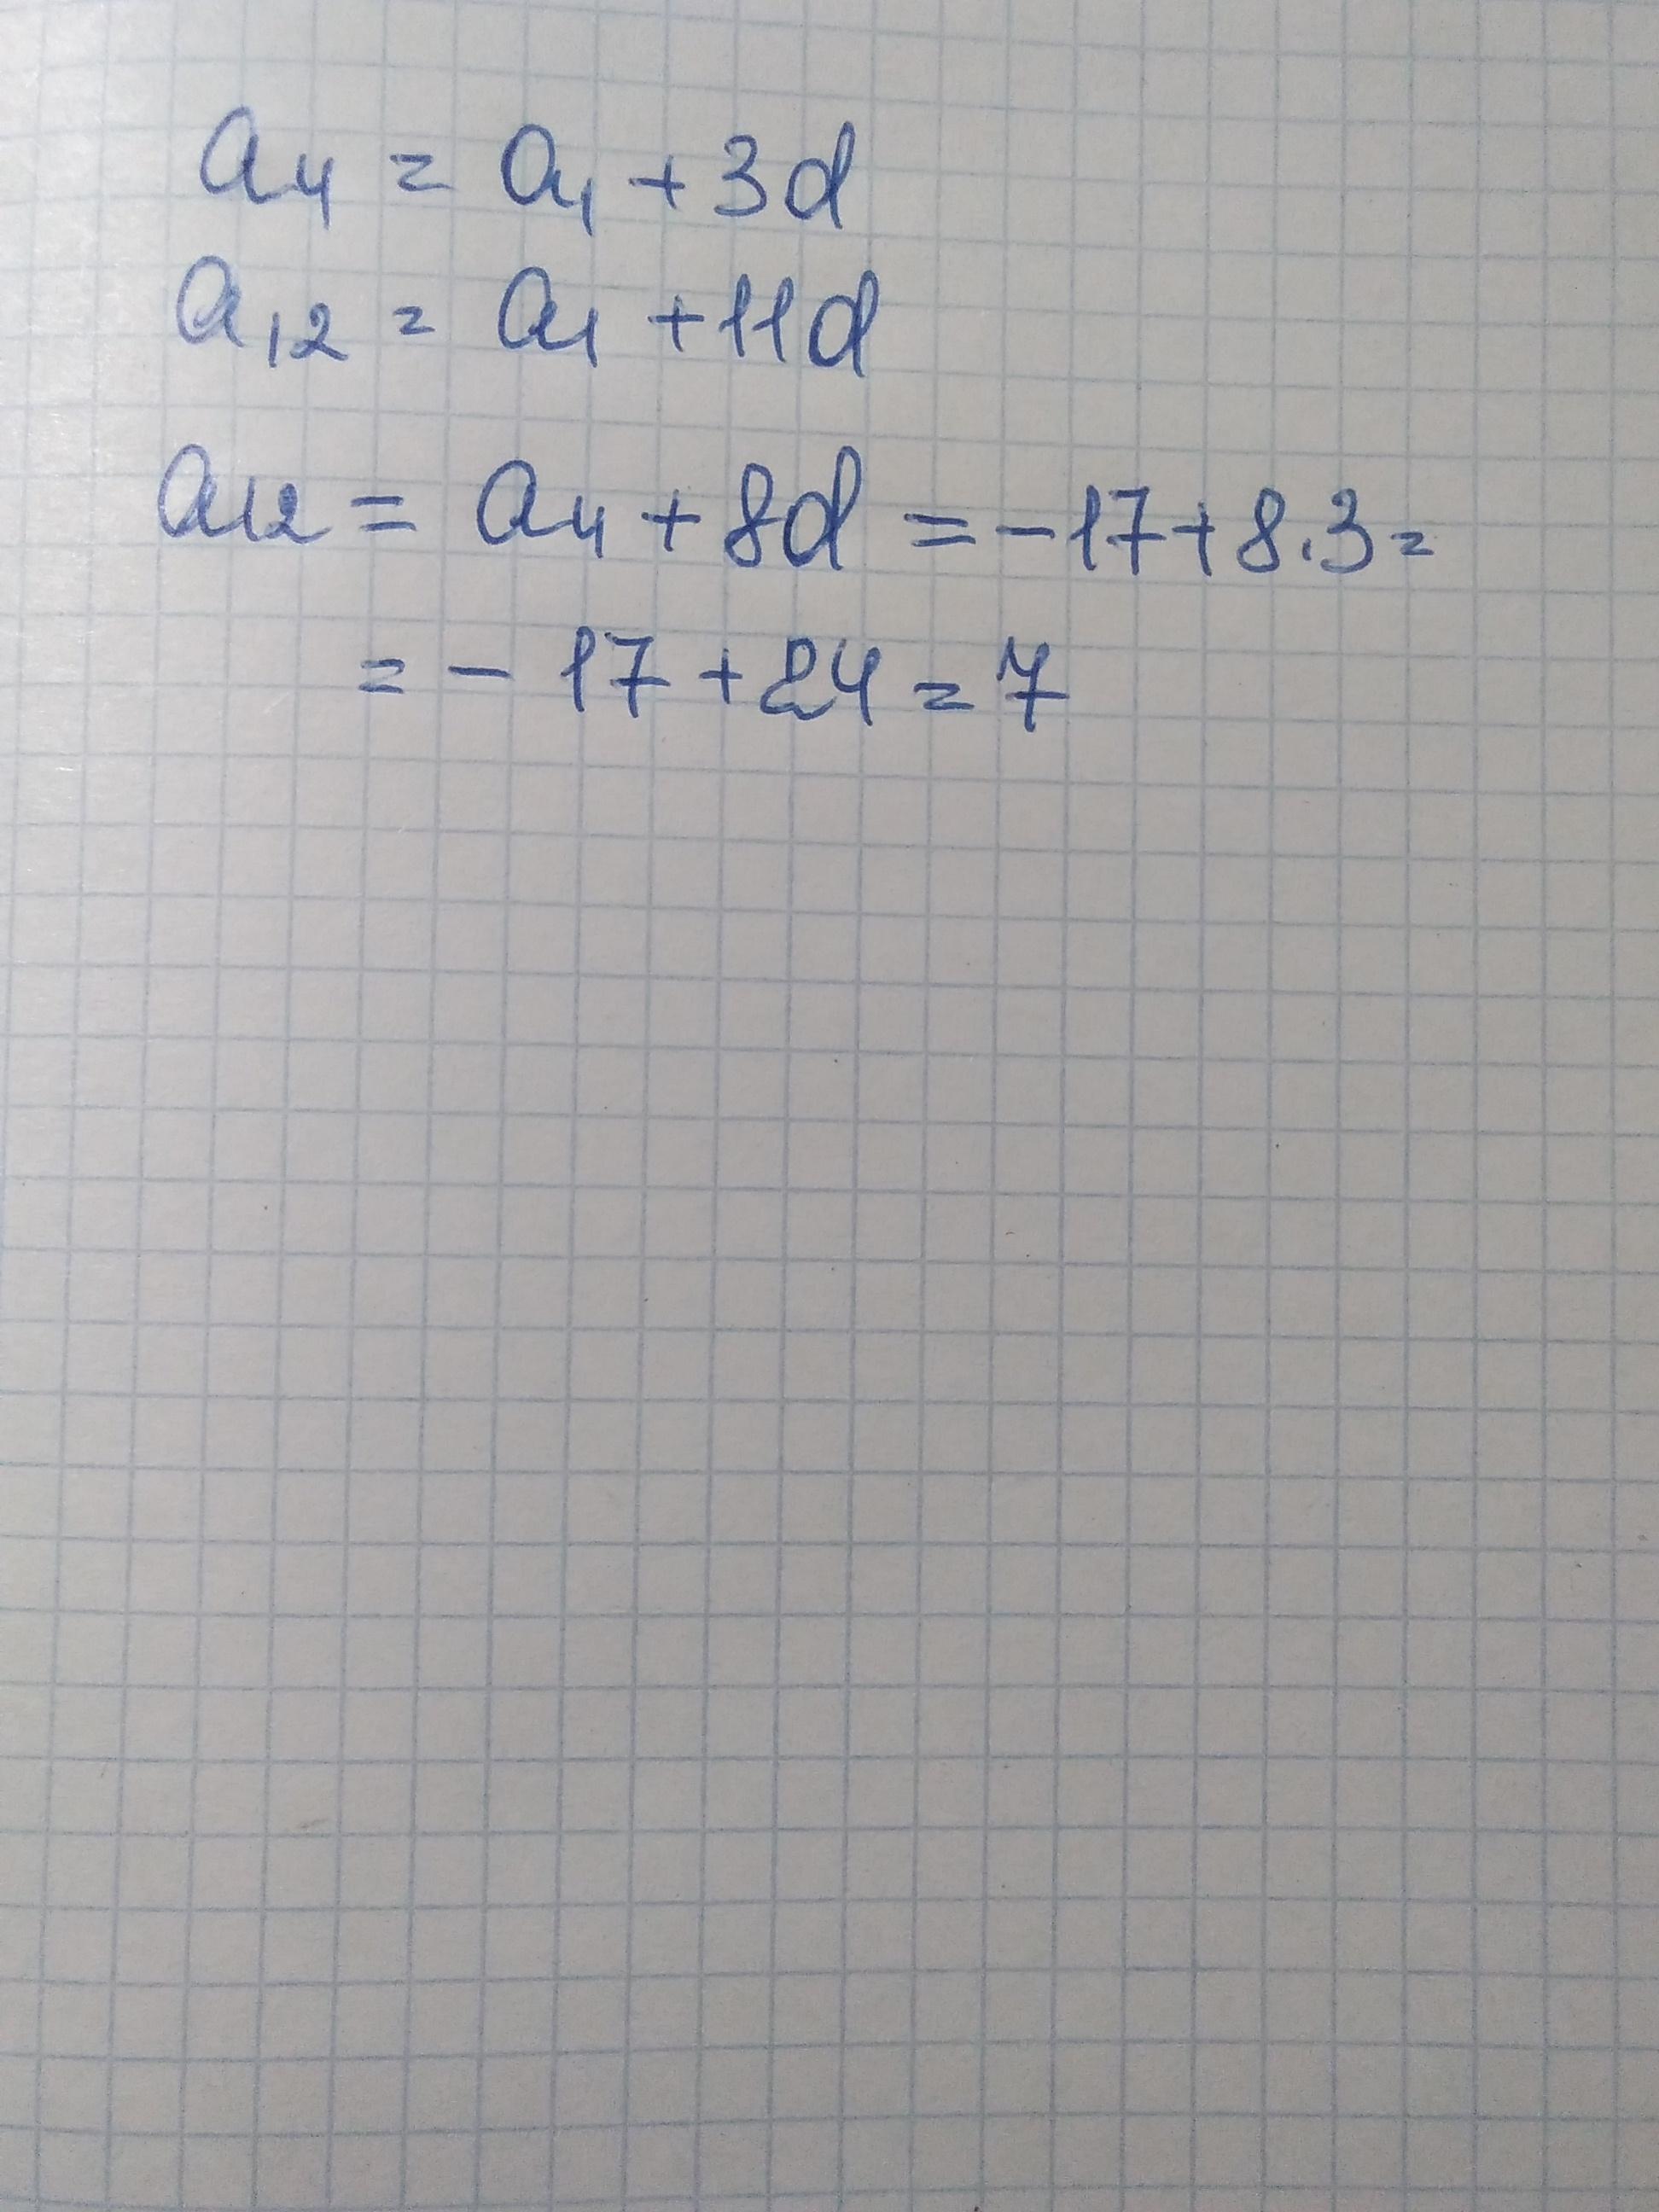 a₄ = a₁ + 3d
a₁₂ = a₁ + 11d
a₁₂ = a₄ + 8d = -17 + 8.3 =
= - 17 + 24 = 7